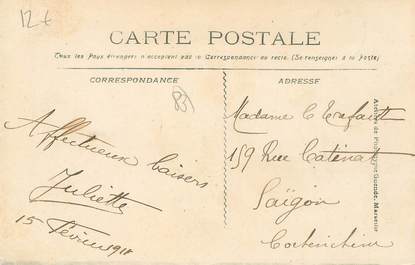 12€
CARTE POSTALE
Tous les Pays étrangers n'acceptent pas la Correspondance au recto. (Se renseigner à la Poste)
CORRESPONDANCE
ADRESSE
Affectueux baisers
Juliette
15 Février 191
Madame C
159 Rue Catinat
Saïgon
Cochinchine
Atelier de Photographie Marseille